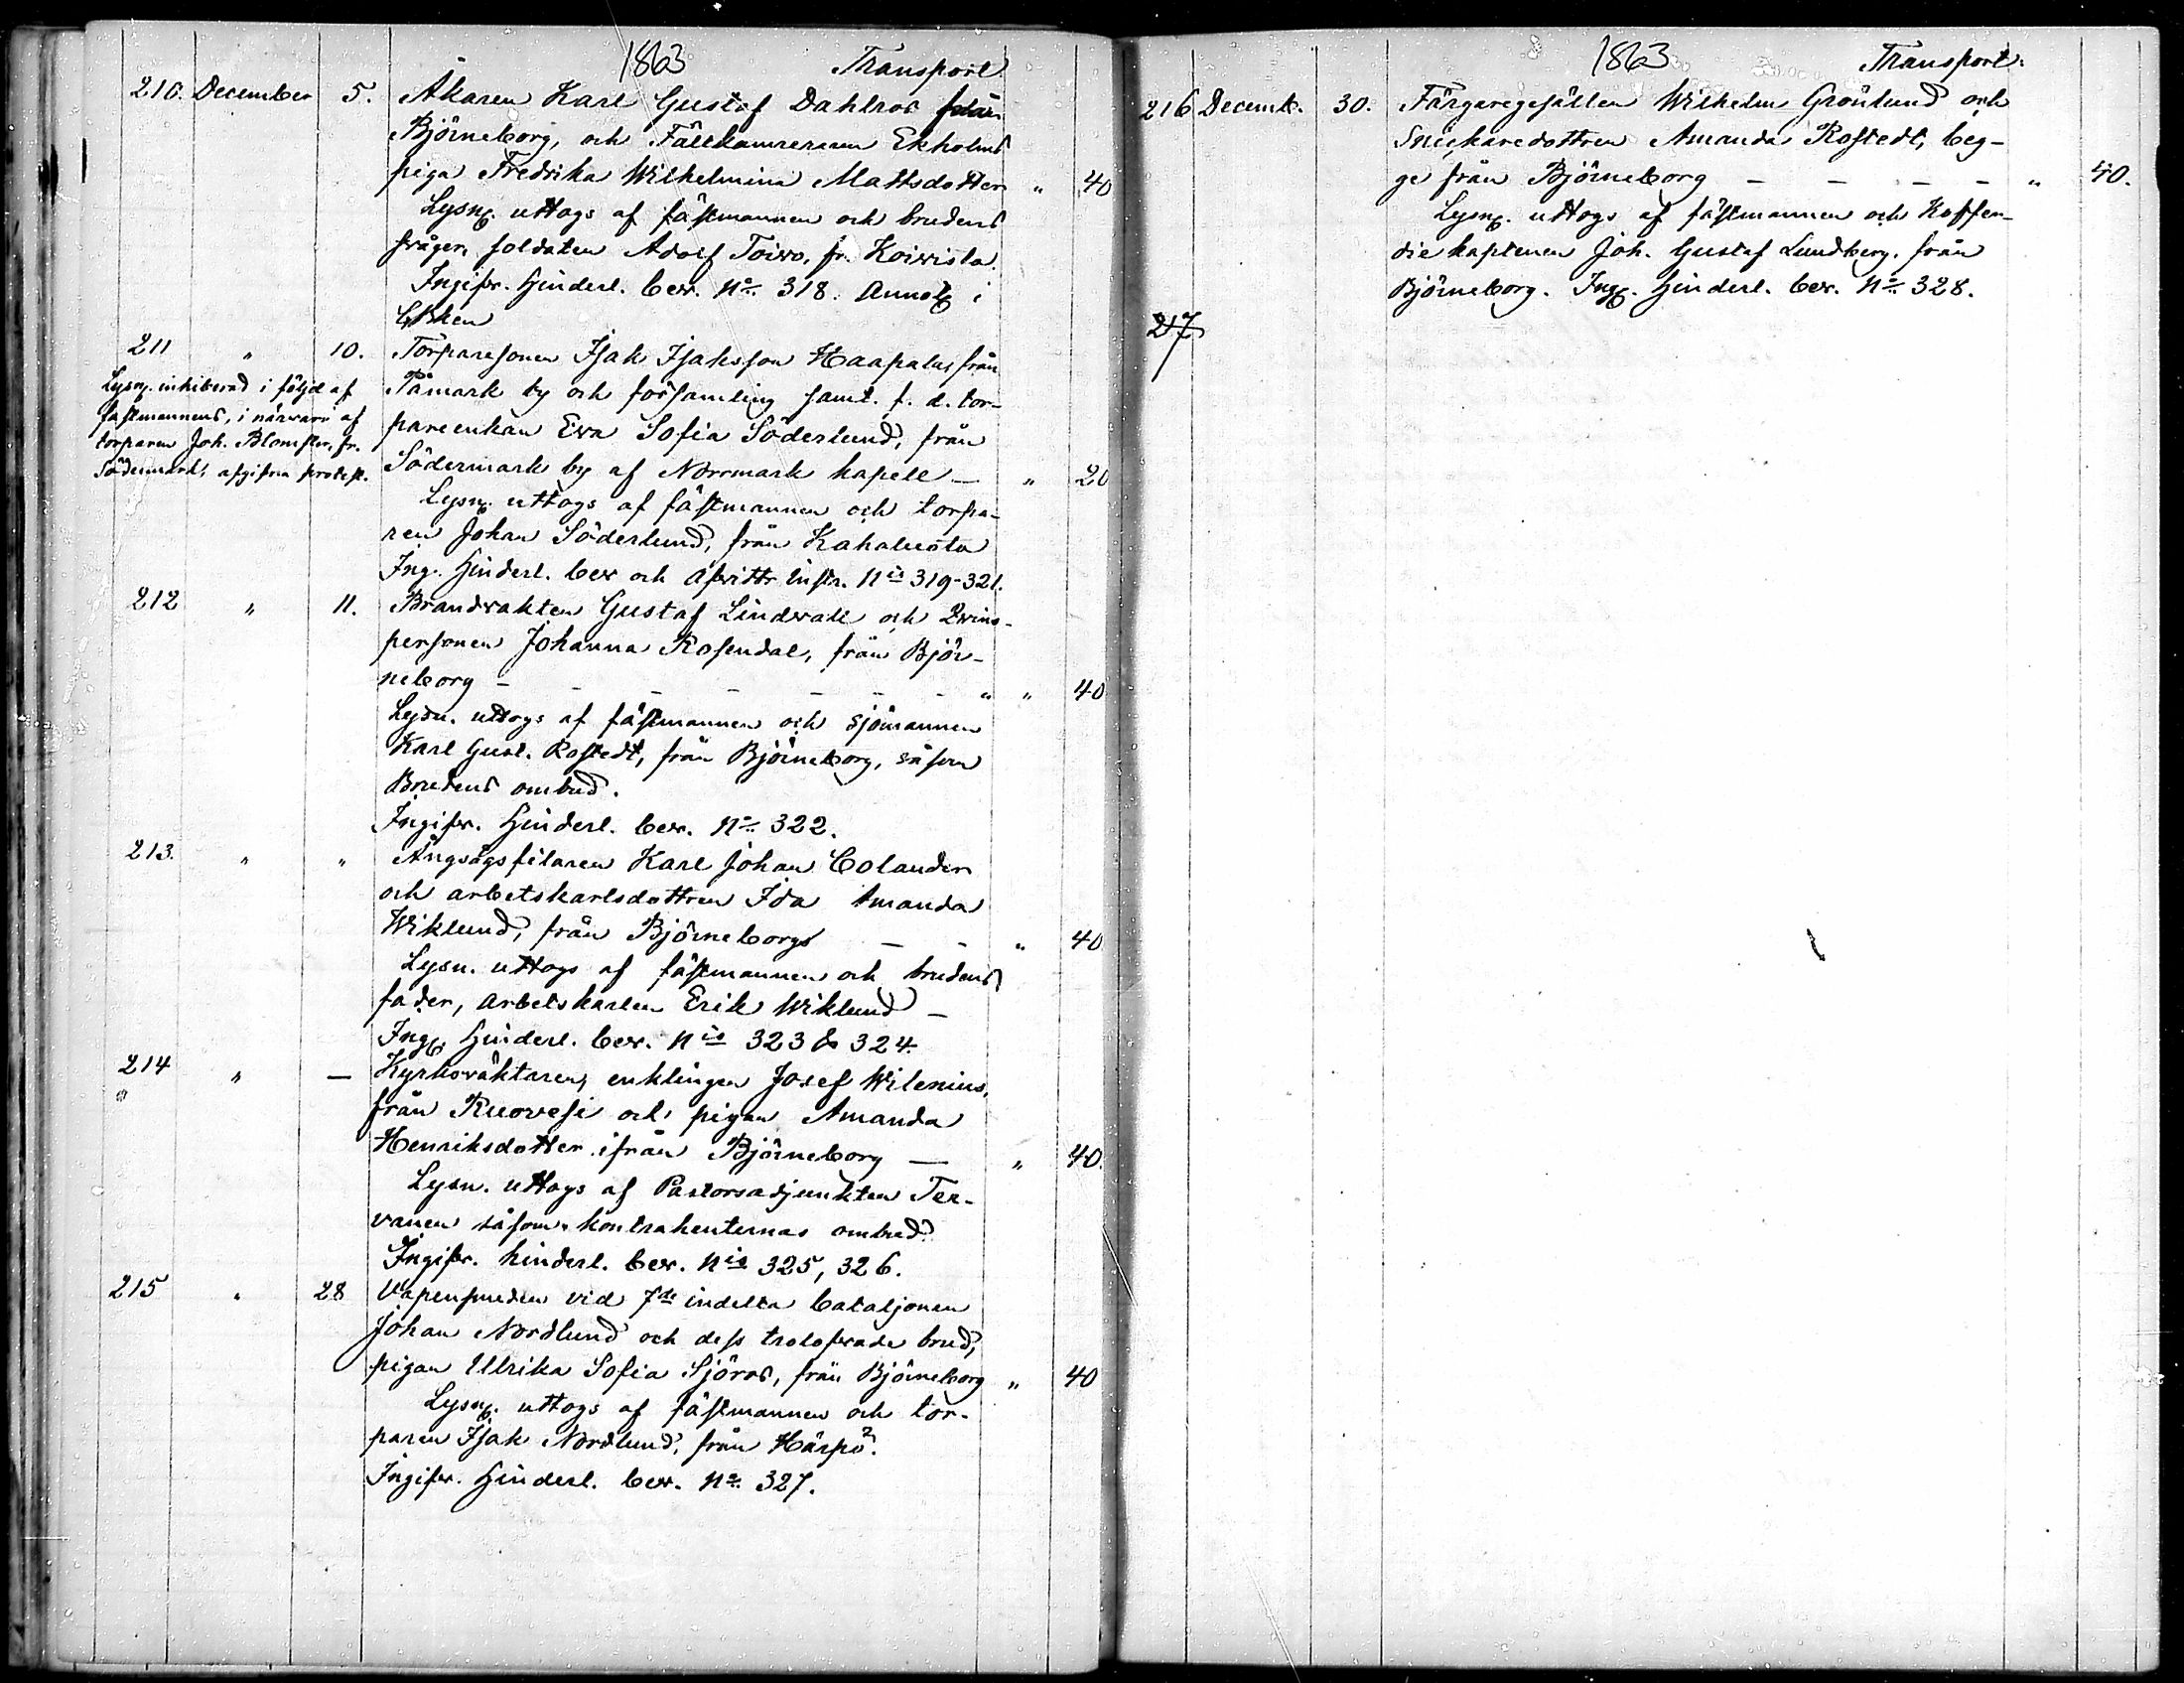 1863 Transport
210. December 5. Åkaren Karl Gustaf Dahlros från
Björneborg, och Fältkamreraren Ekholms
piga Fredrika Wilhelmina Mattsdotter " 40
Lysng. uttogs af fästmannen och brudens
svåger, soldaten Adolf Toivo, fr. Koivisto.
Ingifv. Hinderl. bev. No. 318. Annot. i
211 " 10. Torparesonen Isak Isaksson Haapala, från
Påmark by och församling samt f. d. tor-
pareenkan Eva Sofia Söderlund, från
Södermark by af Norrmark kapell — " 20
Lysng. uttogs af fästmannen och torpa-
ren Johan Söderlund, från Kahaluoto
Ing. Hinderl. bev och Afvittr. Instr. Nis 319-321.
Lysng. inhiberad i följd af
fästmannens, i närvaro af
torparen Joh. Blomster, fr.
Södermark, afgifna protest.
212 " 11. Brandvakten Gustaf Lindvall och Qvins-
personen Johanna Rosendal, från Björ-
neborg - - - - - - - " " 40
Lysn. uttogs af fästmannen och sjömannen
Karl Gust. Rostedt, från Björneborg, såsom
Brudens ombud.
Ingifv. Hinderl. bev. No. 322.
213. " " Ångsågsfilaren Karl Johan Colander
och arbetskarlsdottren Ida Amanda
Wiklund, från Björneborg — - " 40
Lysn. uttogs af fästmannen och brudens
fader, arbetskarlen Erik Wiklund —
Ingf. Hinderl. bev. Nis 323 & 324.
214 " — Kyrkoväktaren, enklingen Josef Wilenius,
från Ruovesi och pigan Amanda
Henriksdotter ifrån Björneborg — " 40.
Lysn. uttogs af Pastorsadjunkten Ter-
vanen såsom kontrahenternas ombud.
Ingifv. hinderl. bev. Nis 325, 326.
215 " 28 Vapensmeden vid 7de indelta bataljonen
Johan Nordlund och dess trolofvade brud,
pigan Ulrika Sofia Sjöros, från Björneborg " 40
Lysng. uttogs af fästmannen och tor-
paren Isak Nordlund, från Härpö?.
Ingifv. Hinderl. bev. No. 327.
1863 Transport.
216 Decemb. 30. Färgaregesällen Wilhelm Grönlund och
Snickaredottren Amanda Rostedt, beg-
ge från Björneborg — — — — " 40.
Lysng. uttogs af fästmannen och Koffer-
die kaptenen Joh. Gustaf Lundberg, från
Björneborg. Ingf. Hinderl. bev. No. 328.
217